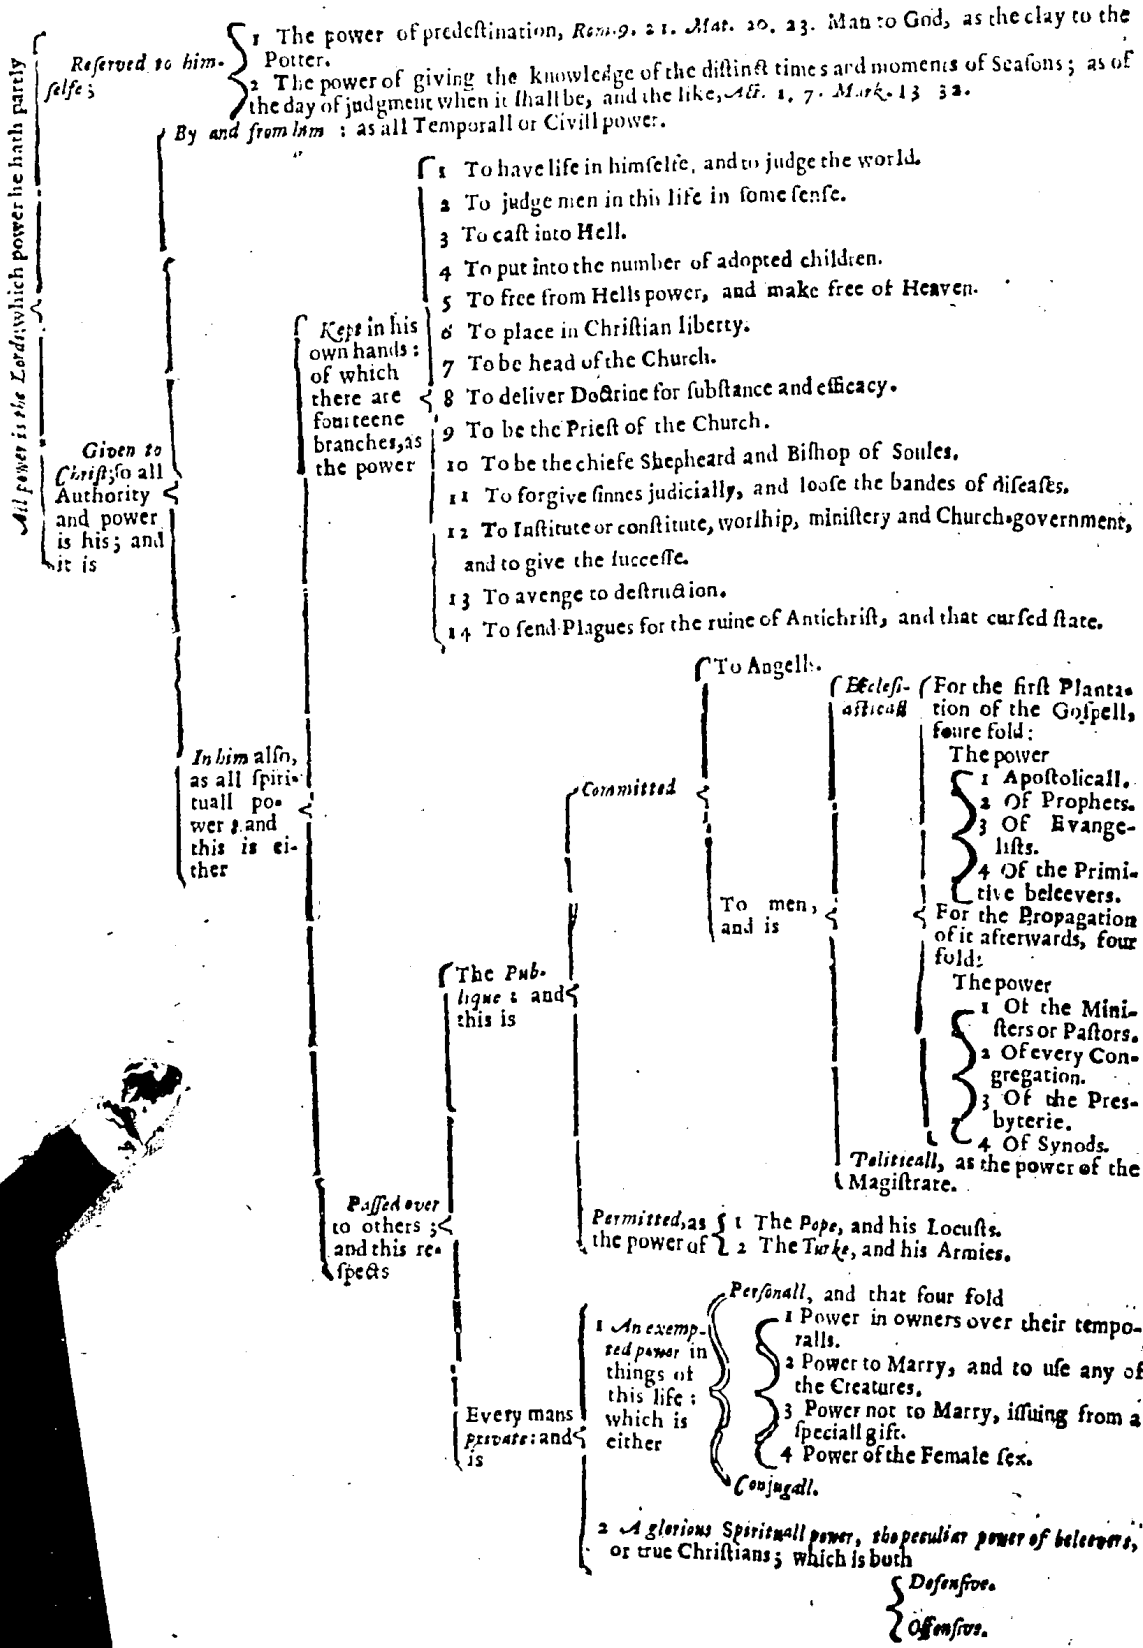 All power is the Lords; which power he hath partly
Reserved to him-
selfe;
1 The power of predeſtination, Rom. 9. 21. Mat. 20. 23. Man to God, as the clay to the
Potter.
2 The power of giving the knowledge of the diſtinct times and moments of Seaſons; as of
the day of judgment when it ſhall be, and the like, Act. 1. 7. Mark. 13 32.
Given to
Chriſt; ſo all
Authority
and power
is his; and
it is
By and from him : as all Temporall or Civill power.
In him alſo,
as all ſpiri-
tuall po-
wer : and
this is ei-
ther
Kept in his
own hands :
of which
there are
fourteene
branches, as
the power
1 To have life in himſelfe, and to judge the world.
2 To judge men in this life in ſome ſenſe.
3 To caſt into Hell.
4 To put into the number of adopted children.
5 To free from Hells power, and make free of Heaven.
6 To place in Chriſtian liberty.
7 To be head of the Church.
8 To deliver Doctrine for ſubſtance and efficacy.
9 To be the Prieſt of the Church.
10 To be the chiefe Shepheard and Biſhop of Soules.
11 To forgive ſinnes judicially, and looſe the bandes of diſeaſes.
12 To Inſtitute or conſtitute, worſhip, miniſtery and Church-government,
and to give the ſucceſſe.
13 To avenge to deſtruction.
14 To ſend Plagues for the ruine of Antichriſt, and that curſed ſtate.
Paſſed over
to others ;
and this re-
ſpects
The Pub-
lique : and
this is
Committed
To Angells.
To men,
and is
Eccleſi-
aſticall
For the firſt Planta-
tion of the Goſpell,
foure fold :
The power
1 Apoſtolicall.
2 Of Prophets.
3 Of Evange-
liſts.
4 Of the Primi-
tive beleevers.
For the Propagation
of it afterwards, four
fold:
The power
1 Of the Mini-
ſters or Paſtors.
2 Of every Con-
gregation.
3 Of the Pres-
byterie.
4 Of Synods.
Politicall, as the power of the
Magiſtrate.
Permitted, as
the power of
1 The Pope, and his Locuſts.
2 The Turke, and his Armies.
Every mans
private: and
is
1 An exemp-
ted power in
things of
this life :
which is
either
Perſonall, and that four fold
1 Power in owners over their tempo-
ralls.
2 Power to Marry, and to uſe any of
the Creatures.
3 Power not to Marry, iſſuing from a
ſpeciall gift.
4 Power of the Female ſex.
Conjugall.
2 A glorious Spirituall power, the peculiar power of beleevers,
or true Chriſtians ; which is both
Defenſive.
Offenſive.